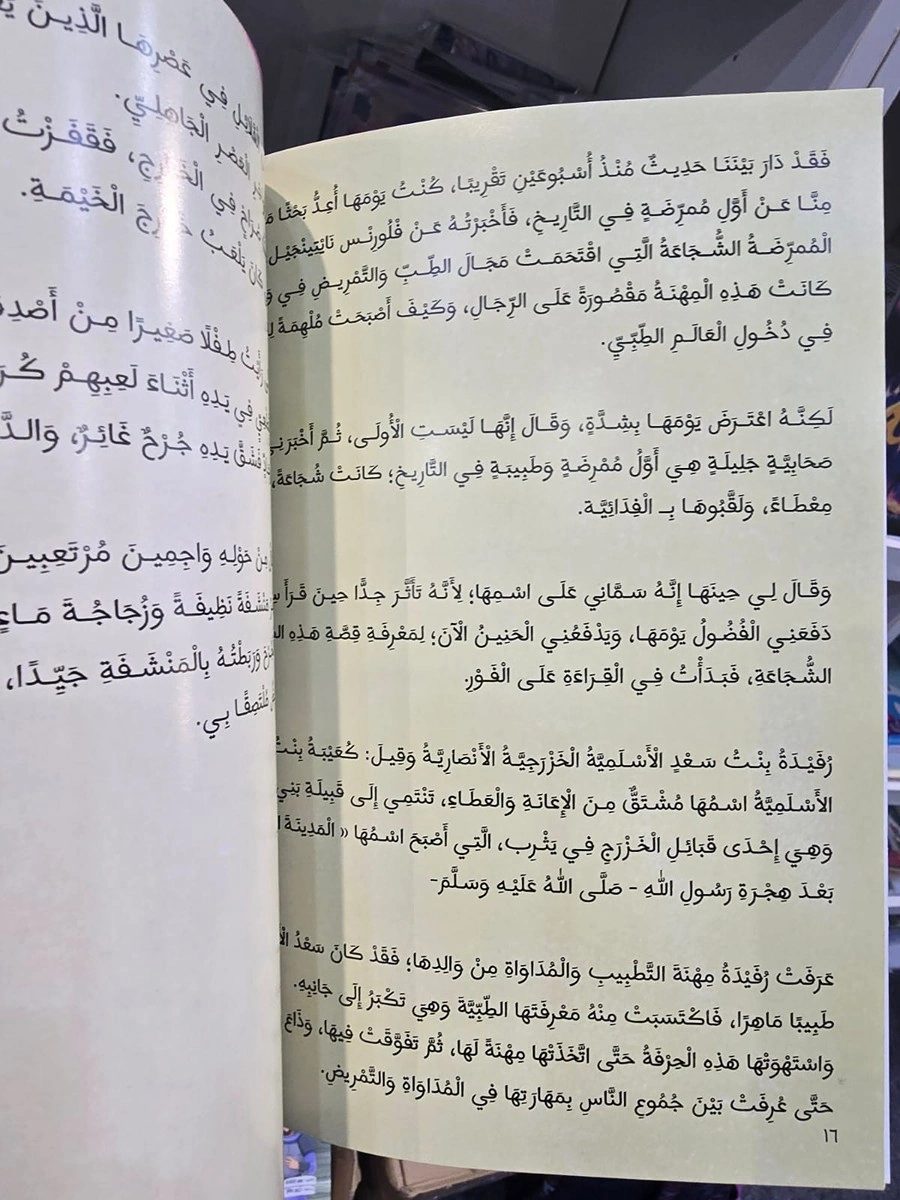 فَقَدْ دَارَ بَيْنَنَا حَدِيثٌ مُنْذُ أُسْبُوعَيْنِ تَقْرِيبًا، كُنْتُ يَوْمَهَا أُعِدُّ بَحْثًا
مِنَّا عَنْ أَوَّلِ مُمرِّضَةٍ فِي التَّارِيخِ، فَأَخْبَرْتُهُ عَنْ فْلُورِنْس نَايْتِينْجَيْل
الْمُمرِّضَةُ الشُّجَاعَةُ الَّتِي اقْتَحَمَتْ مَجَالَ الطِّبِّ وَالتَّمْرِيضِ فِي
كَانَتْ هَذِهِ الْمِهْنَةُ مَقْصُورَةً عَلَى الرِّجَالِ، وَكَيْفَ أَصْبَحَتْ مُلْهِمَةً
فِي دُخُولِ الْعَالَمِ الطِّبِّيِّ.
لَكِنَّهُ اعْتَرَضَ يَوْمَهَا بِشِدَّةٍ، وَقَالَ إِنَّهَا لَيْسَتِ الْأُولَى، ثُمَّ أَخْبَرَنِي
صَحَابِيَّةٍ جَلِيلَةٍ هِيَ أَوَّلُ مُمْرِضَةٍ وَطَبِيبَةٍ فِي التَّارِيخِ؛ كَانَتْ شُجَاعَةً،
مِعْطَاءً، وَلَقَّبُوهَا بِـ الْفِدَائِيَّة.
وَقَالَ لِي حِينَهَا إِنَّهُ سَمَّانِي عَلَى اسْمِهَا؛ لِأَنَّهُ تَأَثَّرَ جِدًّا حِينَ قَرَأَ
دَفَعَنِي الْفُضُولُ يَوْمَهَا، وَيَدْفَعُنِي الْحَنِينُ الْآنَ؛ لِمَعْرِفَةِ قِصَّةِ هَذِهِ
الشُّجَاعَةِ، فَبَدَأْتُ فِي الْقِرَاءَةِ عَلَى الْفَوْرِ.
رُفَيْدَةُ بِنْتُ سَعْدٍ الْأَسْلَمِيَّةُ الْخَزْرَجِيَّةُ الْأَنْصَارِيَّةُ وَقِيلَ: كُعَيْبَةُ بِنْتُ
الْأَسْلَمِيَّةُ اسْمُهَا مُشْتَقٌّ مِنَ الْإِعَانَةِ وَالْعَطَاءِ، تَنْتَمِي إِلَى قَبِيلَةِ بَنِي
وَهِيَ إِحْدَى قَبَائِلِ الْخَزْرَجِ فِي يَثْرِب، الَّتِي أَصْبَحَ اسْمُهَا « الْمَدِينَةَ
بَعْدَ هِجْرَةِ رَسُولِ اللهِ - صَلَّى اللهُ عَلَيْهِ وَسَلَّمَ-
عَرَفَتْ رُفَيْدَةُ مِهْنَةَ التَّطْبِيبِ وَالْمُدَاوَاةِ مِنْ وَالِدِهَا؛ فَقَدْ كَانَ سَعْدُ
طَبِيبًا مَاهِرًا، فَاكْتَسَبَتْ مِنْهُ مَعْرِفَتَهَا الطِّبِّيَّةَ وَهِيَ تَكْبَرُ إِلَى جَانِبِهِ.
وَاسْتَهْوَتْهَا هَذِهِ الْحِرْفَةُ حَتَّى اتَّخَذَتْهَا مِهْنَةً لَهَا، ثُمَّ تَفَوَّقَتْ فِيهَا، وَذَاعَ
حَتَّى عُرِفَتْ بَيْنَ جُمُوعِ النَّاسِ بِمَهَارَتِهَا فِي الْمُدَاوَاةِ وَالتَّمْرِيضِ.
١٦
فِي عَصْرِهَا الَّذِينَ
الْعَصْرِ الْجَاهِلِيِّ.
فِي الْخَارِجِ، فَقَفَزْتُ
كَانَ يَلْعَبُ خَارِجَ الْخَيْمَةِ.
طِفْلًا صَغِيرًا مِنْ
فِي يَدِهِ أَثْنَاءَ لَعِبِهِمْ
يَدِهِ جُرْحٌ غَائِرٌ،
مِنْ حَوْلِهِ وَاجِمِينَ مُرْتَعِبِينَ
نَظِيفَةً وَزُجَاجَةَ مَاءٍ
وَرَبَطْتُهُ بِالْمَنْشَفَةِ جَيِّدًا،
مُلْتَصِقًا بِي.